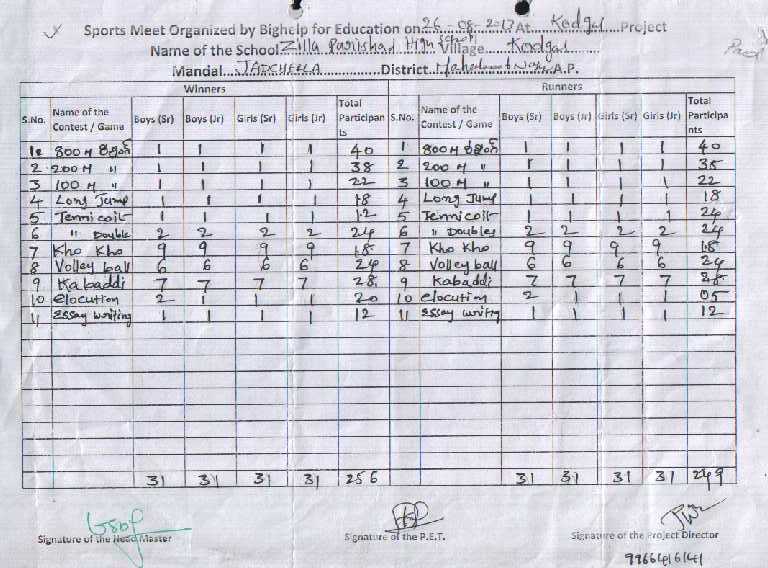 Sports Meet Organized by Bighelp for Education on 26-08-2017 At Kodgal Project
Name of the School Zilla Parishad High School Village Kodgal
Mandal JADCHERLA District Mahabubnagar A.P.
Winners Runners
S.No. Name of the Contest / Game Boys (Sr) Boys (Jr) Girls (Sr) Girls (Jr) Total Participants S.No. Name of the Contest / Game Boys (Sr) Boys (Jr) Girls (Sr) Girls (Jr) Total Participants
1 800 M 1 1 1 1 40 1 800 M 1 1 1 1 40
2 200 M " 1 1 1 1 38 2 200 M " 1 1 1 1 38
3 100 M " 1 1 1 1 22 3 100 M " 1 1 1 1 22
4 Long Jump 1 1 1 1 18 4 Long Jump 1 1 1 1 18
5 Tennicoit 1 1 1 1 12 5 Tennicoit 1 1 1 1 24
6 " Double 2 2 2 2 24 6 " Doubles 2 2 2 2 24
7 Kho Kho 9 9 9 9 18 7 Kho Kho 9 9 9 9 18
8 Volley ball 6 6 6 6 24 8 Volley ball 6 6 6 6 24
9 Kabaddi 7 7 7 7 28 9 Kabaddi 7 7 7 7 28
10 elocution 2 1 1 1 20 10 elocution 2 1 1 1 05
11 essay writing 1 1 1 1 12 11 essay writing 1 1 1 1 12
31 31 31 31 256 31 31 31 31 249
Signature of the Head Master Signature of the P.E.T. Signature of the Project Director
9966416141